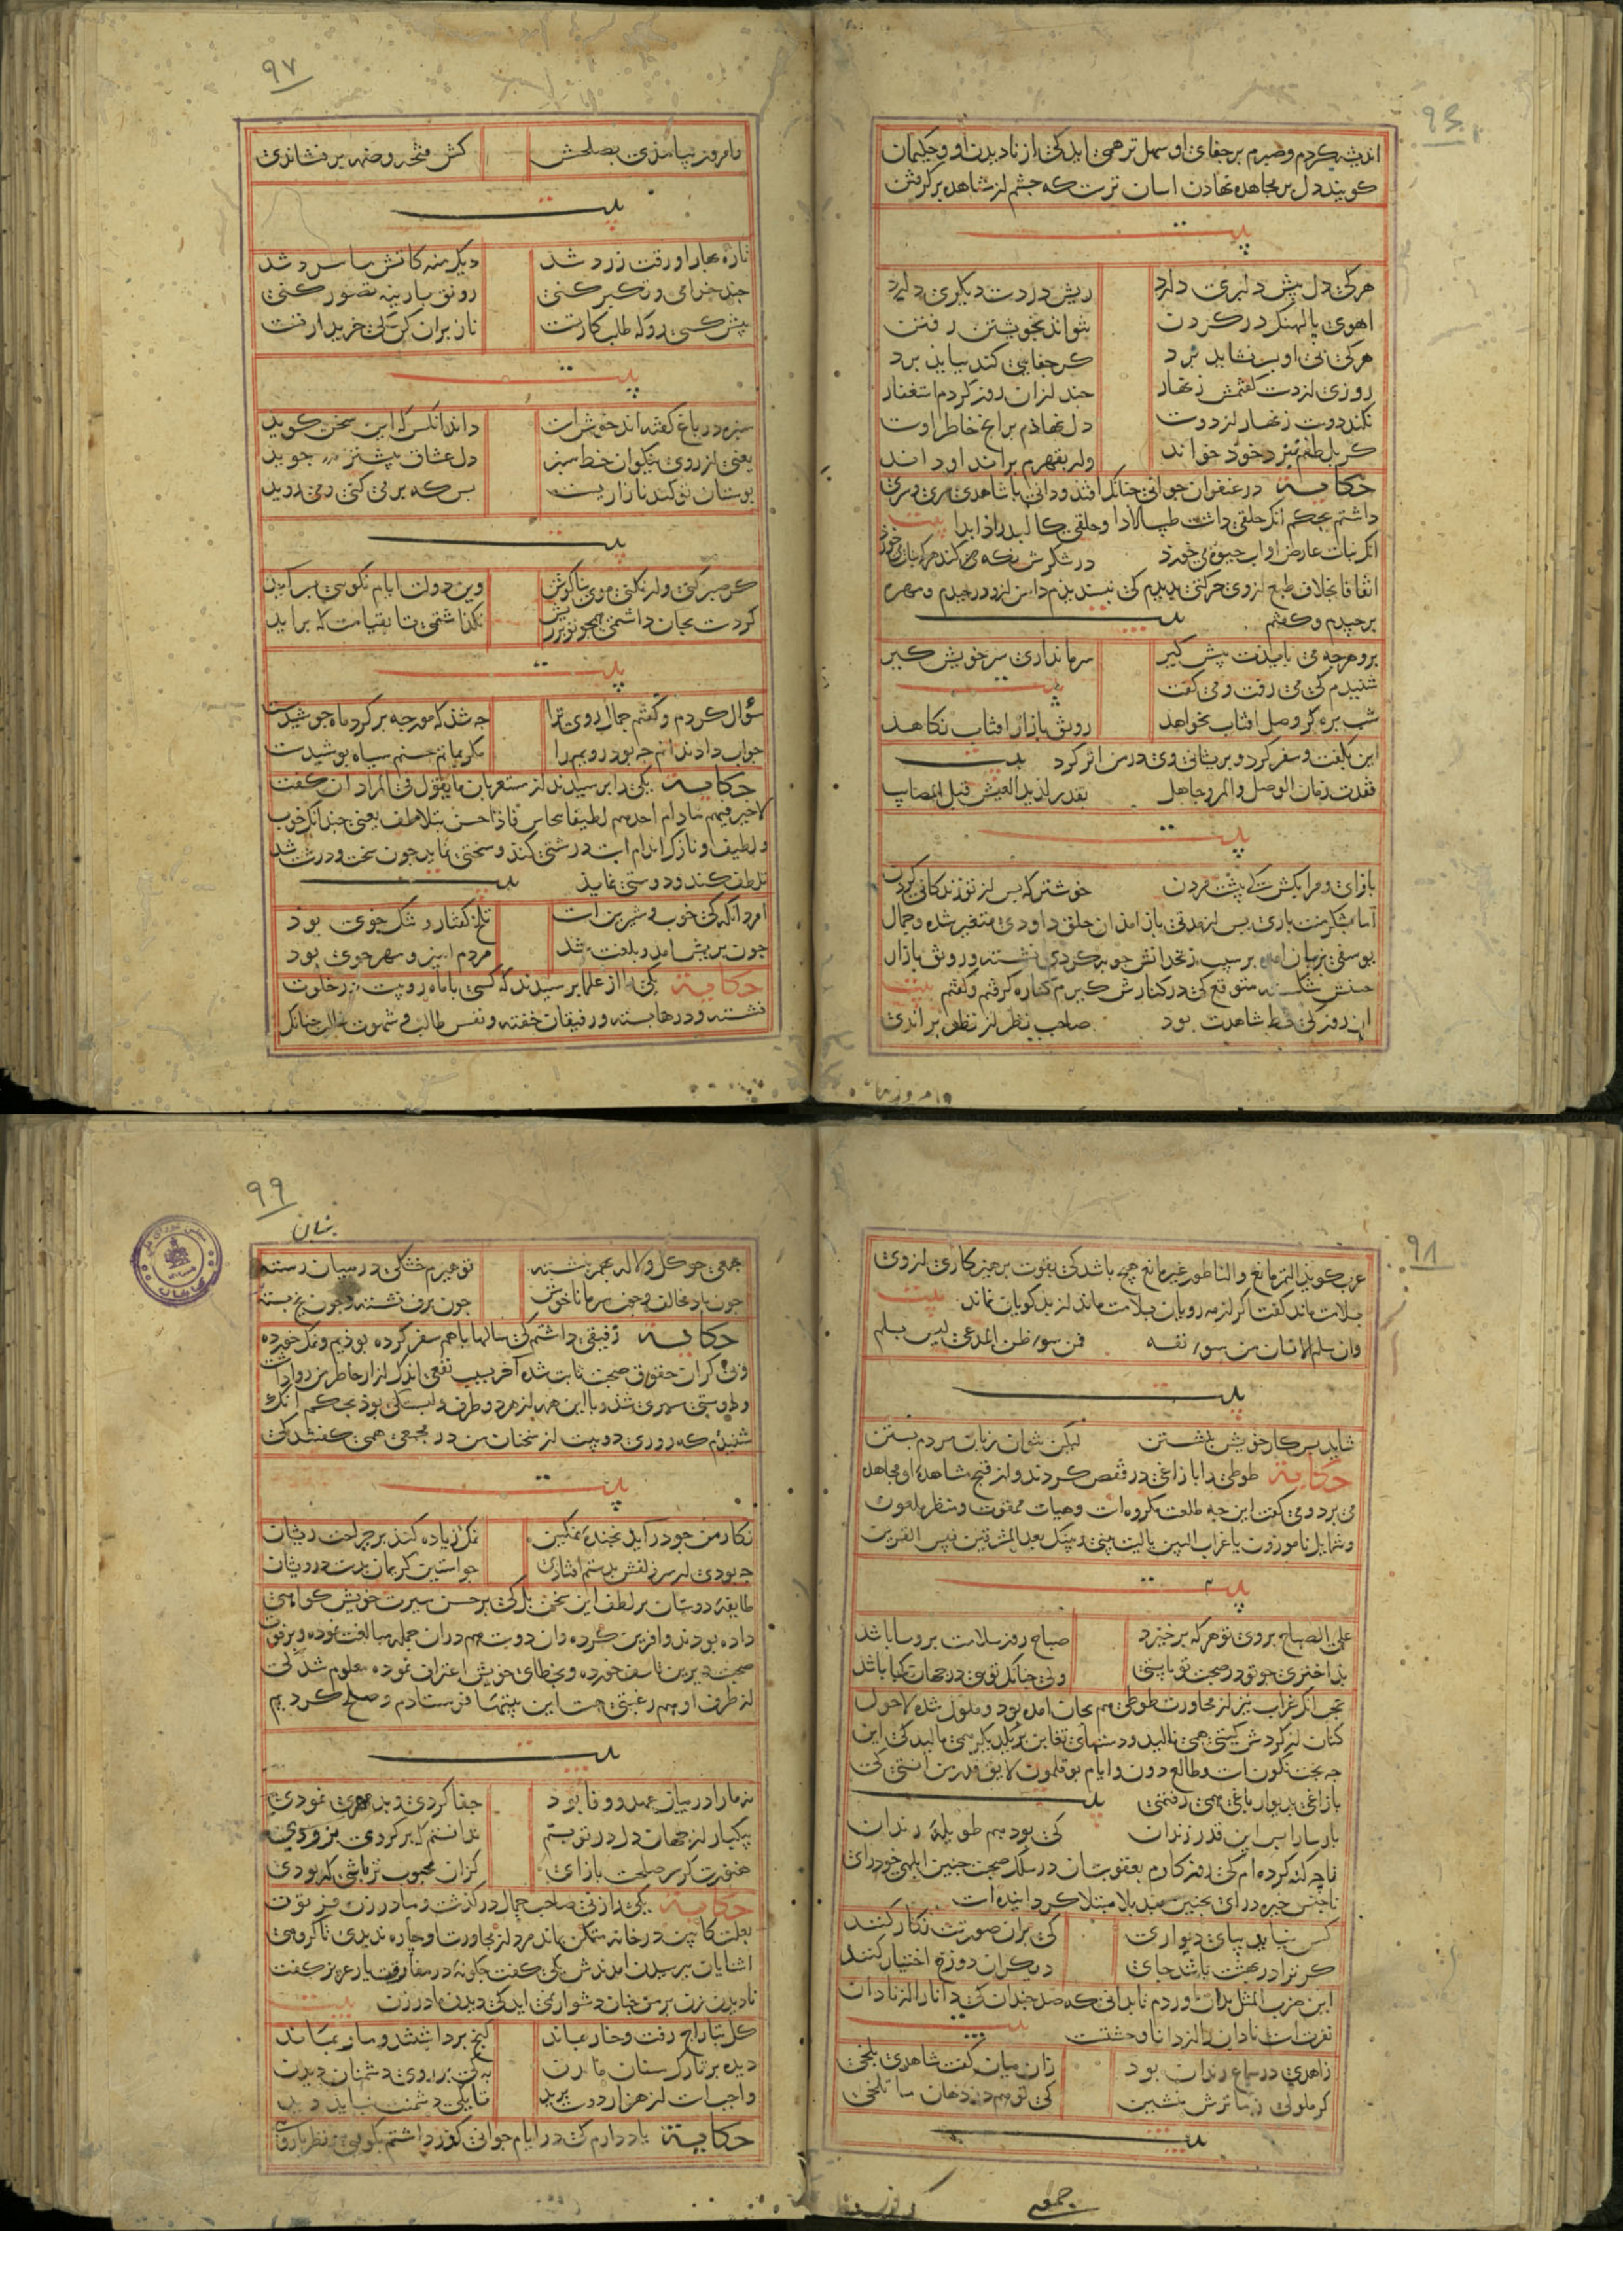 ۹۶
اندیشه کردم و صبرم بر جفای او سهل تر همی اید کی از نادیدن او و حکیمان
کویند دل بر مجاهده نهادن اسان ترست که جشم از مشاهده بر کرفتن
بیت
هرکی دل بیش دلبری دارد ریش در دست دیکری دارد
اهوی بالهنک در کردن نتواند بخویشتن رفتن
هرکی بی او بسر نشاید برد کر جفایی کند بباید برد
روزی از دست کفتمش زنهار جند ازان روز کردم استغفار
نکند دوست زنهار از دوست دل نهاذم بر انج خاطر اوست
کر بلطفم بنزد خوذ خواند ور بقهرم براند او داند
حکایة در عنفوان جوانی جنانک افتذ و دانی با شاهدی سری و سری
داشتم بحکم انک حلقی داشت طیب الادا و خلقی کالبدر اذا بدا بیت
انک نبات عارض اواب حیوة می خورذ در شکرش نکه کند هرکه نبات می خورذ
اتفاقا بخلاف طبع از وی حرکتی بدیدم کی نبسندیذم دامن ازو در جیدم و مهره
بر جیدم و کفتم بیت
برو هرجه می بایدت بیش کیر سر ما نداری سر خویش کیر
شنیدم کی می رفت و می کفت بیت
شب بره کر وصل افتاب نخواهد رونق بازار افتاب نکاهذ
این بکفت و سفر کرد و بریشانی وی در من اثر کرد بیت
فقدت زمان الوصل والمرء جاهل بقدر لذیذ العیش قبل المصایب
بیت
باز ای و مرا بکش که بیشت مردن خوشتر که بس از تو زندکانی کردن
اما بشکر منت باری بس از مدتی باز امذ ان حلق داودی متغیر شده و جمال
یوسفی بزیان امده بر سیب زنخدانش جو به کردی نشسته و رونق بازار
حسنش شکسته متوقع کی در کنارش کیرم کناره کرفتم و کفتم بیت
ان روز کی خط شاهدت بود صاحب نظر از نظر براندی
وامروز بیا
۹۷
وامروز بیامذی بصلحش کش فتحه و ضمه بر نشاندی
بیت
تازه بهارا ورقت زرد شد دیک منه کاتش ما سرد شد
جند خرامی و تکبر کنی رونق بارینه تصور کنی
بیش کسی رو که طلب کار تست ناز بران کن کی خریدار تست
بیت
سبزه در باغ کفته اند خوش است داند انکس که این سخن کوید
یعنی از روی نیکوان خط سبز دل عشاق بیشتر جوید
بوستان تو کند نا زاریست بس که بر می کنی و می روید
بیت
کر صبر کنی ور نکنی موی بناکوش وین دولت ایام نکویی بسر اید
کر دست بجان داشتمی همجو تو بر ریش نکذاشتمی تا بقیامت که بر اید
بیت
سؤال کردم و کفتم جمال روی ترا جه شد که مورجه بر کرد ماه جوشیدست
جواب داد ندانم جه بود رویم را مکر بماتم حسنم سیاه بوشیدست
حکایة یکی را برسیدند از مستعربان ما یقول فی المراد ان کفت
لا خیر فیهم مادام احدهم لطیفا یتخاشن فاذا احسن یتلاطف یعنی جندانک خوب
و لطیف و نازک اندام است درشتی کند و سختی نماید جون سخت و درشت شد
تلطف کند و دوستی نمایذ بیت
امرد انکه کی خوب و شیرین است تلخ کفتار و تنک خوی بوذ
جون بریش امد و بلعنت شد مردم امیز و مهر جوی بود
حکایة یکی را از علما برسیدند که کسی با ماه رویست در خلوت
نشسته و درها بسته و رفیقان خفته و نفس طالب و شهوت غالب جنانک
۹۸
عرب کویذ التمر یانع والناطور غیر مانع هیچ باشد کی بقوت برهیزکاری از وی
بسلامت ماند کفت اکر از مه رویان بسلامت ماند از بد کویان نماند بیت
وان سلم الانسان من سوء نفسه فمن سوء ظن المدعی لیس یسلم
بیت
شاید بس کار خویش بنشستن لیکن نتوان زبان مردم بستن
حکایة طوطی را با زاغی در قفص کردند و از قبح مشاهدۀ او مجاهده
می برد و می کفت این جه طلعت مکروه است و هیات ممقوت و منظر ملعون
و شمایل نامورون یا غراب البین یا لیت بینی و بینک بعد المشرقین فبیس القرین
بیت
علی الصباح بروی تو هرکه برخیزد صباح روز سلامت برو مسا باشد
بذاختری جو تو در صحبت تو بایستی ولی جنانک توی در جهان کجا باشد
عجب انک غراب نیز از مجاورت طوطی هم بجان امده بود و ملول شده لا حول
کنان از کردش کیتی همی نالید و دستهای تغابن بر یکدیکر همی مالید کی این
جه بخت نکون است و طالع دون و ایام بوقلمون لایق قدر من انستی کی
با زاغی بدیوار باغی همی رفتمی بیت
بارسا را بس این قدر زندان کی بود هم طویلۀ رندان
تا چه کنه کرده ام کی روزکارم بعقوبت ان در سلک صحبت جنین ابلهی خود رای
ناجنس خیره درای بجنین بند بلا مبتلا کردانیده است
کس نیاید ببای دیواری کی بران صورتت نکار کنند
کر ترا در بهشت باشد جای دیکران دوزخ اختیار کنند
این ضرب المثل بدان اوردم تا بدانی که صد جندان کی دانا را از نادان
نفرت است نادان را از دانا وحشتست بیت
زاهدی در سماع رندان بود زان میان کفت شاهدی بلخی
کر ملولی ز ما ترش منشین کی تو هم در دهان ما تلخی
بیت
جمعی
۹۹
بنان
جمعی جو کل و لاله بهم بنشسته تو هیزم خشکی در میان رسته
جون باد مخالف و جون سرما ناخوش جون برف نشسته و جون یخ بسته
حکایة رفیقی داشتم کی سالها با هم سفر کرده بوذیم و نمک خورده
و بی کران حقوق صحبت ثابت شده آخر بسبب نفعی اندک ازار خاطر من روا داشت
و دوستی سبری شذ و با این همه از هر دو طرف دلبستکی بوذ بحکم انک
شنیدم که روزی دو بیت از سخنان من در مجمعی همی کفتند کی
بیت
نکار من جو در آید بخنده نمکین نمک زیاده کند بر جراحت ریشان
جه بودی ار سر زلفش بدستم افتادی جو استین کریمان بدست درویشان
طایفۀ دوستان بر لطف این سخن بل کی بر حسن سیرت خویش کواهی
داده بودند و افرین کرده وان دوست هم دران جمله مبالغت نموده و بر فوت
صحبت دیرین تاسف خورده و بخطای خویش اعتراف نموده معلوم شد کی
از طرف او هم رغبتی هست این بیتها فرستادم و صلح کردیم
بیت
نه ما را در میان عهد و وفا بود جفا کردی و بد مهری نمودی
بیکبار از جهان دل در تو بستم ندانستم که برکردی بزودی
هنوزت کر سر صلحست باز ای کزان محبوب تر باشی که بودی
حکایة یکی را زنی صاحب جمال در کذشت و مادر زن فرتوت
بعلت کابین در خانه متمکن بماند مرد از مجاورت او جاره ندیدی تا کروهی
اشنایان ببرسیدن امدندش یکی کفت جکونۀ در مفارقت یار عزیز کفت
نادیدن زن بر من جنان دشوار نمی اید کی دیدن مادر زن بیت
کل بتاراج رفت و خار بماند کنج برداشتند و مار بماند
دیده بر تارک سنان دیدن به کی بر روی دشمنان دیدن
واجبست از هزار دوست برید تا یکی دشمنت نباید دید
حکایة یاد دارم کی در ایام جوانی کذر داشتم بکویی و نظر با روی